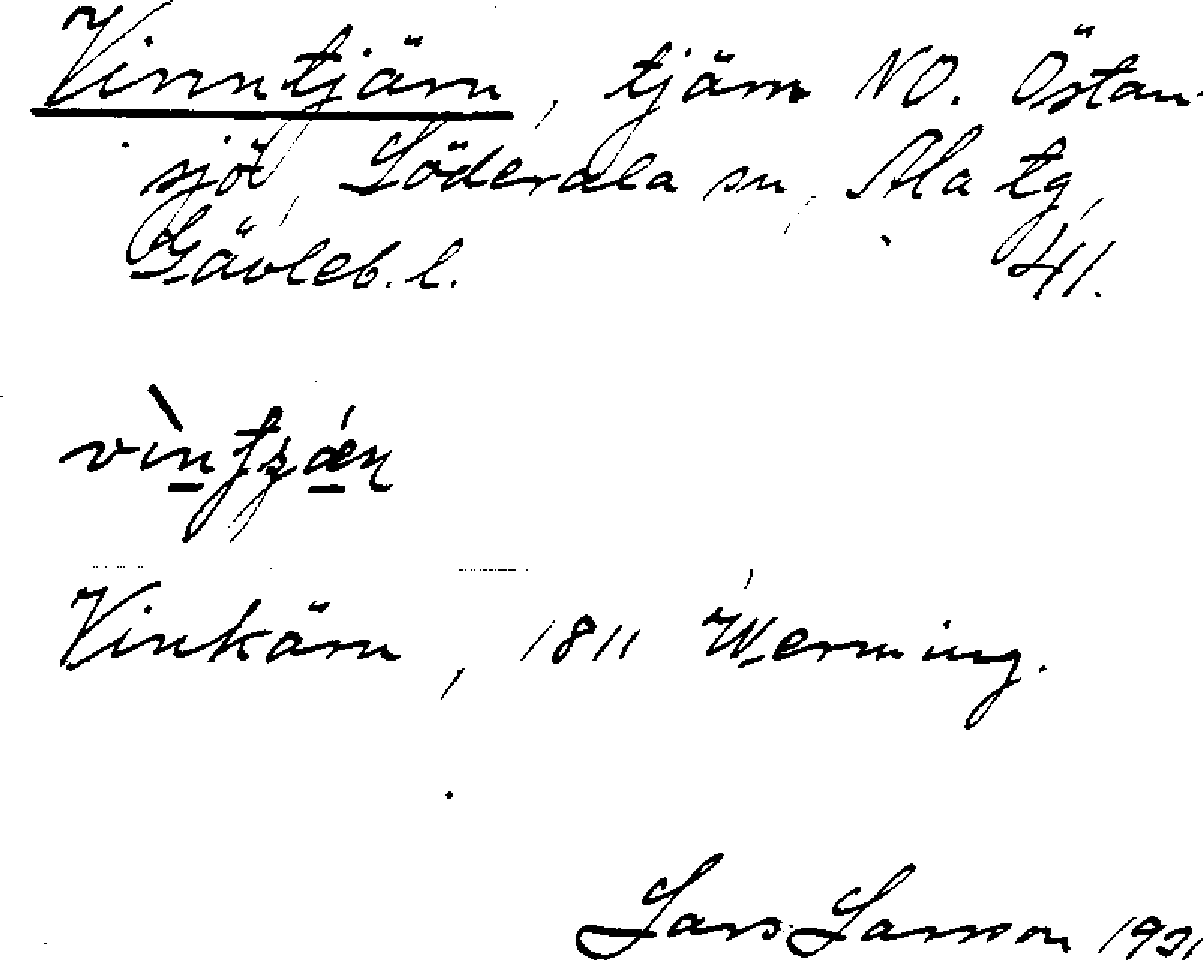 Vinntjärn, tjärn NO. Östan-
sjö, Söderala sn, Ala tg,
Gävleb. l. 41.
vìntʒǽɳ
Vinkärn, 1811 Werming.
Lars Larsson